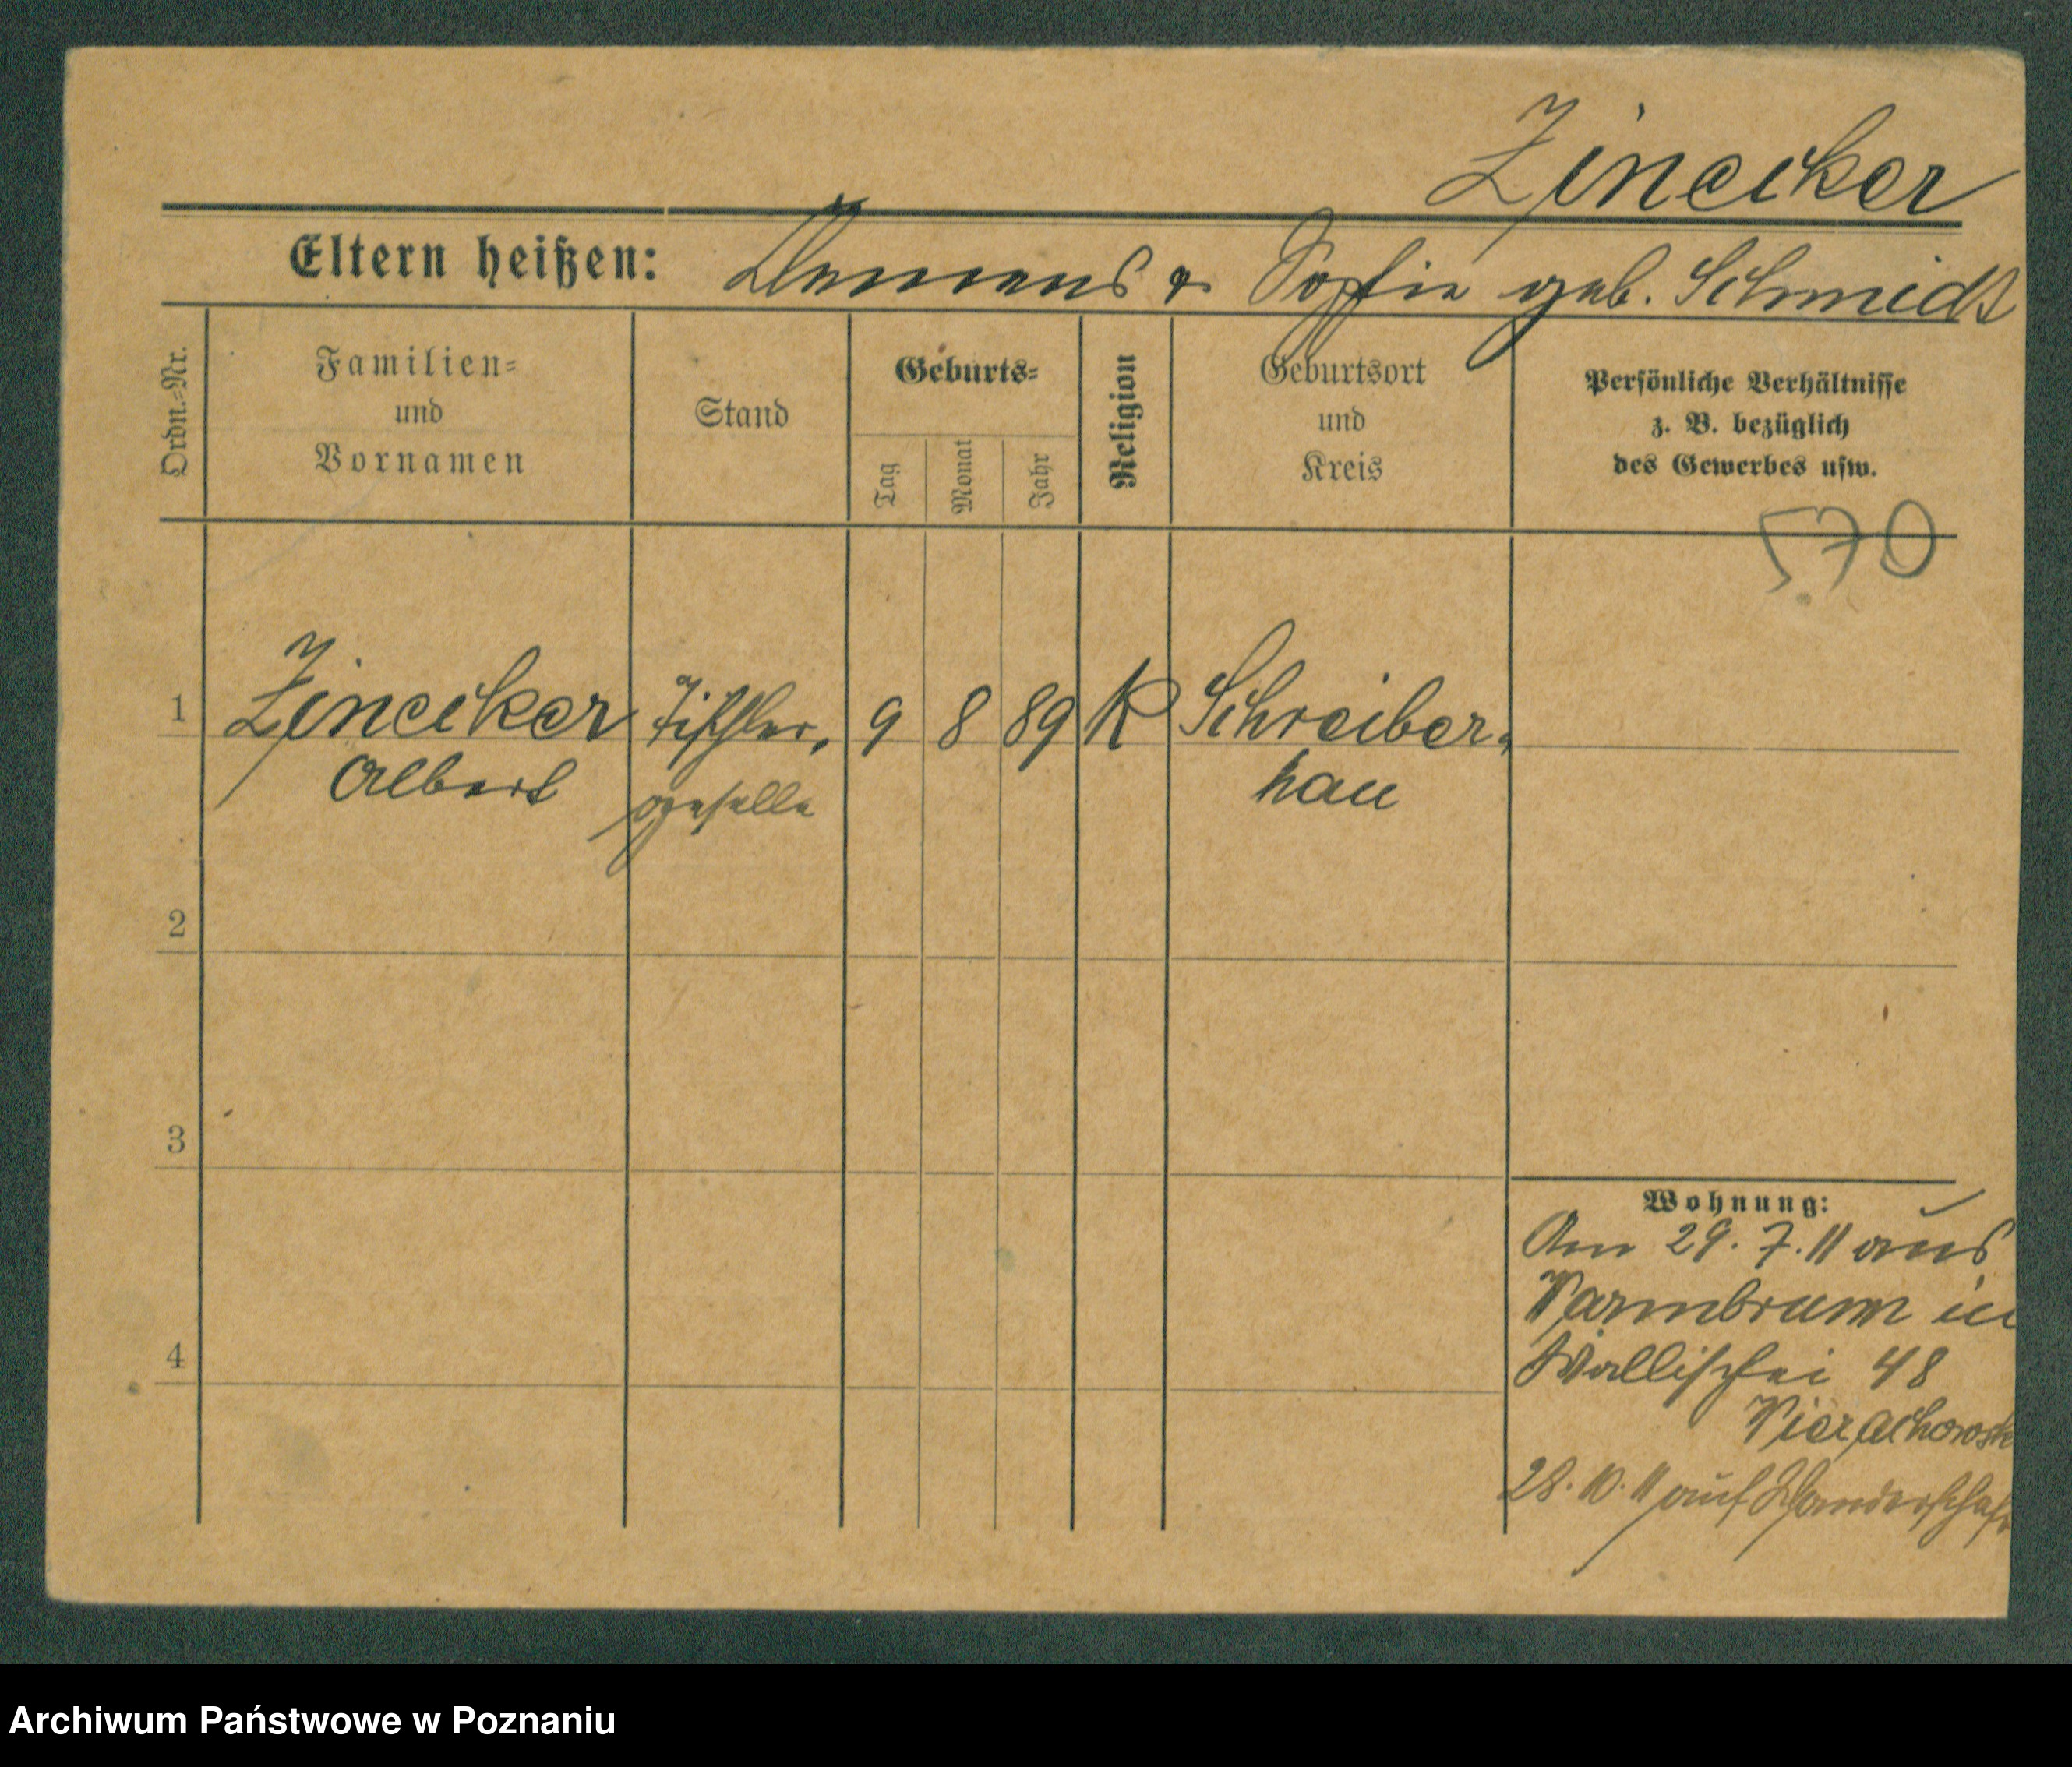 Zinecker
Eltern heißen: Clemens & Sofie geb. Schmidt
Ordn.-Nr.
Familien-
und
Vornamen
Stand
Geburts-
Tag
Monat
Jahr
Religion
Geburtsort
und
Kreis
Persönliche Verhältnisse
z. B. bezüglich
des Gewerbes usw.
570
1 Zinecker Tischler, 9 8 89 K Schreiber,
Albert geselle hau
2
3
4
Wohnung:
Am 29. 7. 11 aus
Warmbrunn in
Wallischei 48
28. 10. 11 auf Wanderschaft
Archiwum Państwowe w Poznaniu